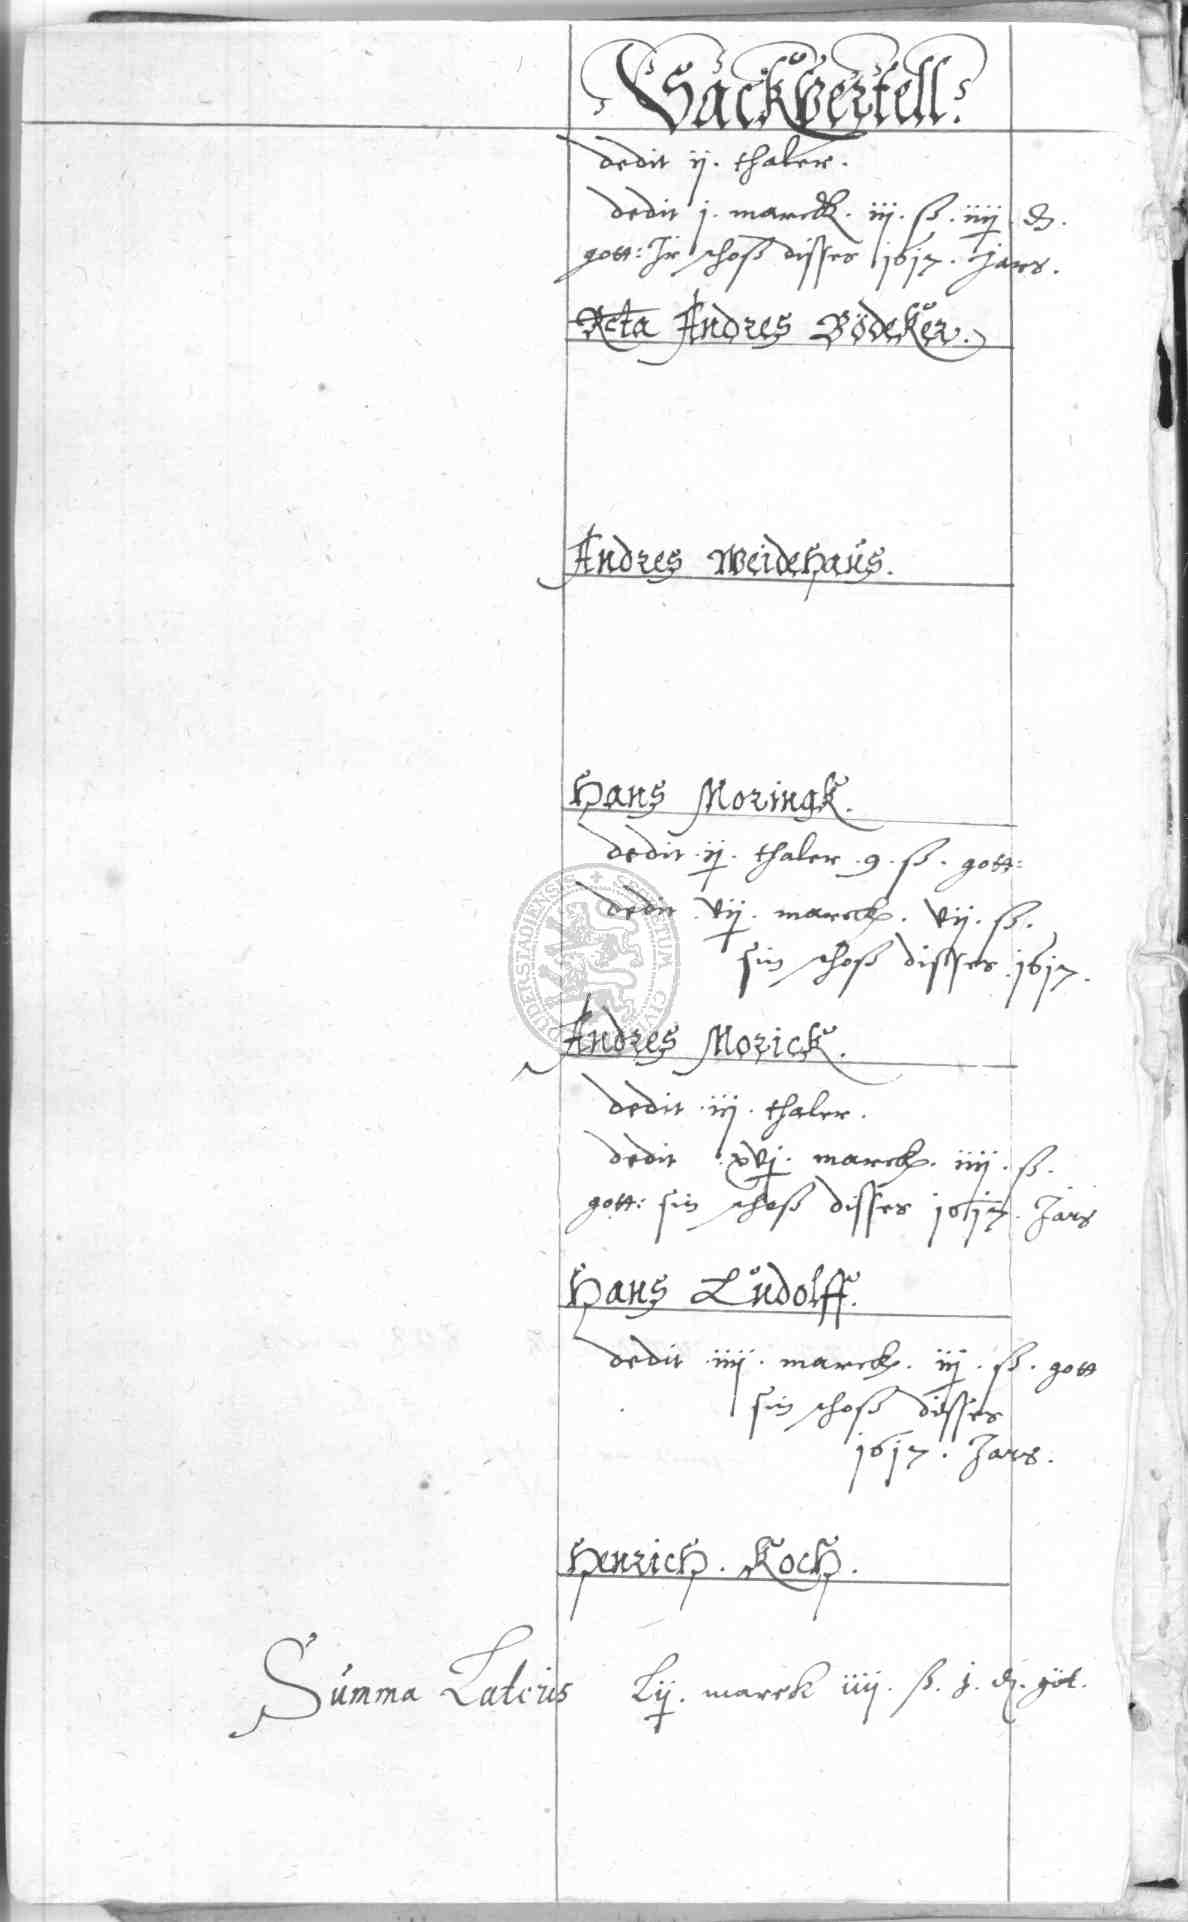 Sackvertell.
dedit ij. thaler.
dedit j. marck. iij. ß. iiij. ₰.
gott: Jr schoß disses 1617. Jars.
Rcta Andres Bödeker.
Andres Weidehaus.
Hans Moringk.
dedit ij. thaler. 9. ß. gott:
dedit vij. marck. vij. ß.
sin schoß disses 1617.
Andres Morick.
dedit iij. thaler.
dedit xvj. marck. iiij. ß.
gott: sin schoß disses 1617. Jars
Hans Ludolff.
dedit iiij. marck. iij. ß. gott
sin schoß disses
1617. Jars.
Henrich. Koch.
Summa Lateris Lij. marck iiij. ß. j. ₰. got.
SECRETUM CIV DUDERSTADIENSIS